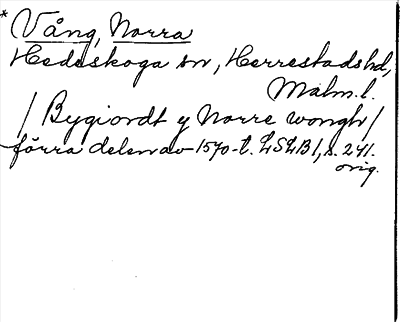 * Vång, Norra
Hedeskoga sn, Herrestads hd,
Malm. l.
/ Bygiordt y Norre wongh /
förra delen av 1570-t. LSLB 1, s. 241.
orig.